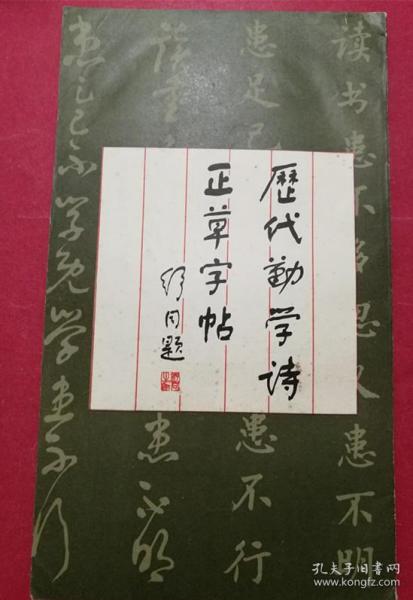 歷代勤学诗
正草字帖
舒同题
读书患不
思义患不明
患足已不
患不行
读书
患不明
患足已不学免学患不行
孔夫子旧书网
www.kongfz.com